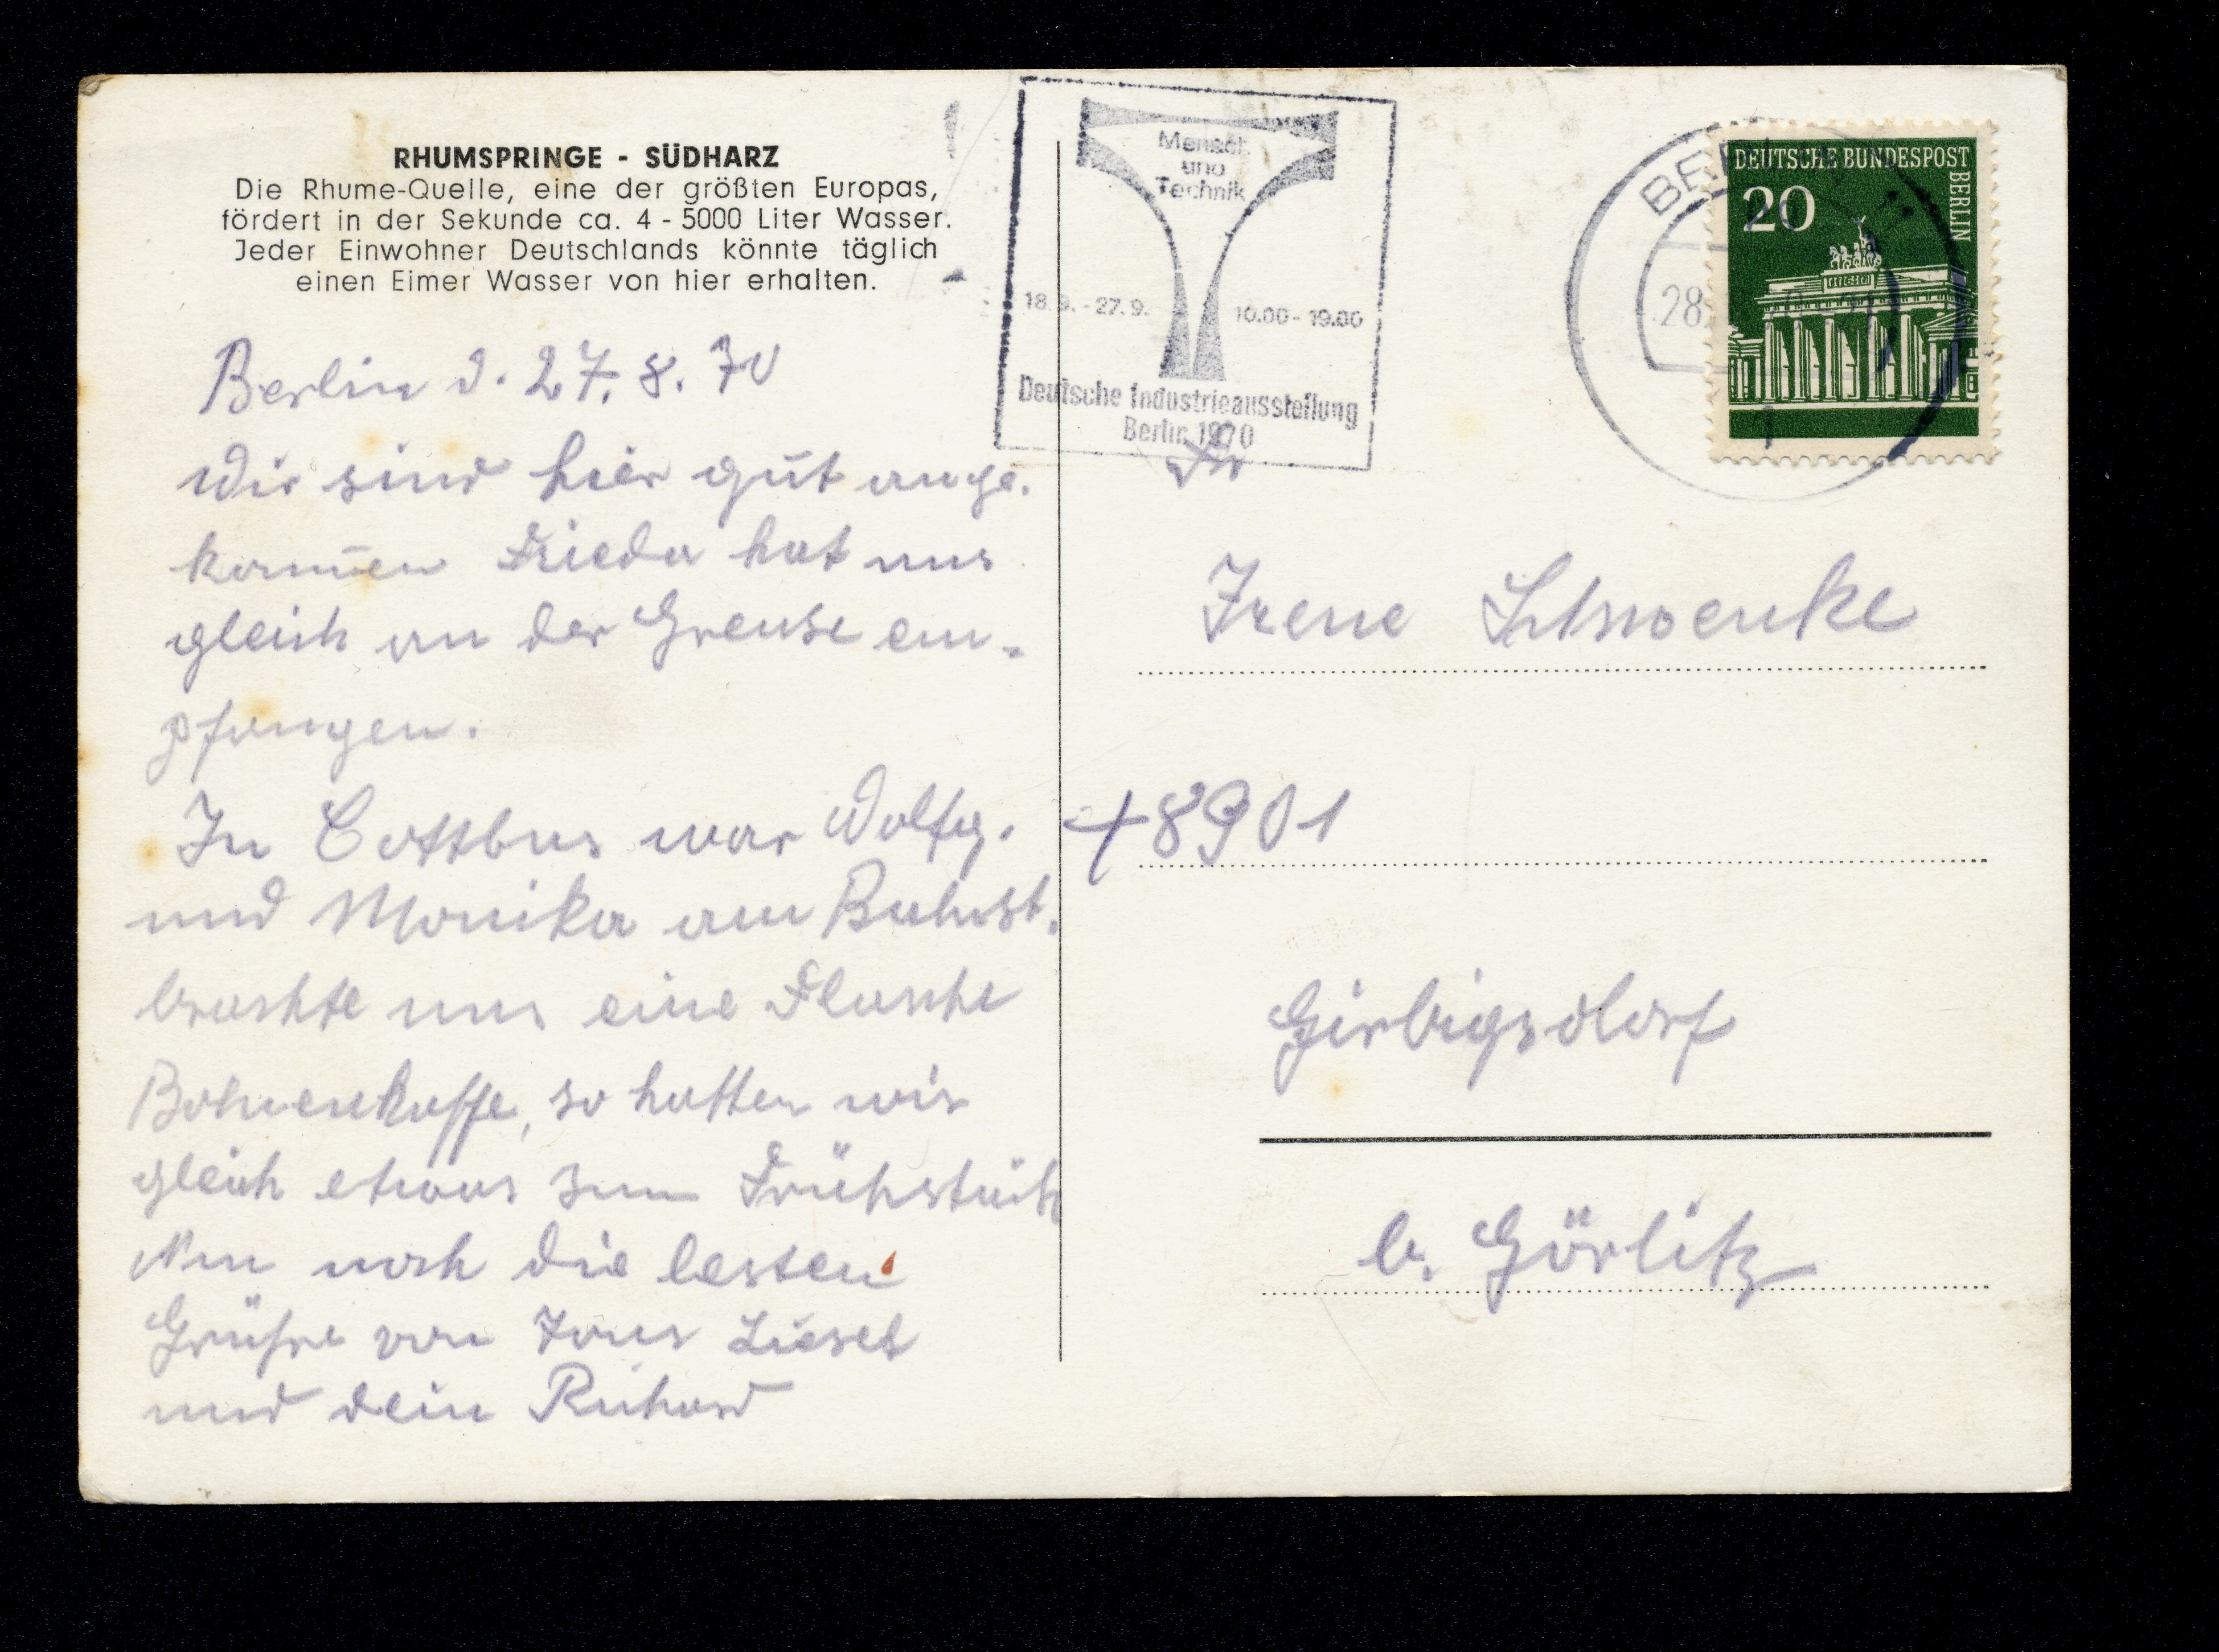 RHUMSPRINGE - SÜDHARZ
Die Rhume-Quelle, eine der größten Europas,
fördert in der Sekunde ca. 4 - 5000 Liter Wasser.
Jeder Einwohner Deutschlands könnte täglich
einen Eimer Wasser von hier erhalten.
Berlin d. 27. 8. 70
Wir sind hier gut ange-
kom̄en Frieda hat uns
gleich an der Grenze em-
pfangen.
In Cottbus war Wolfg.
und Monika am Bahnst.
brachte uns eine Flasche
Bohnenkaffe, so hatten wir
gleich etwas zum Frühstück
Nun noch die besten
Grüße von Liesel
und dein Richard
Mensch
und
Technik
18.9. - 27.9.
10.00 - 19.00
Deutsche Industrieausstellung
Berlin 1970
DEUTSCHE BUNDESPOST
BERLIN
20
28
1
Fr
Irene Schwenke
+ 8901
Girbigsdorf
b. Görlitz